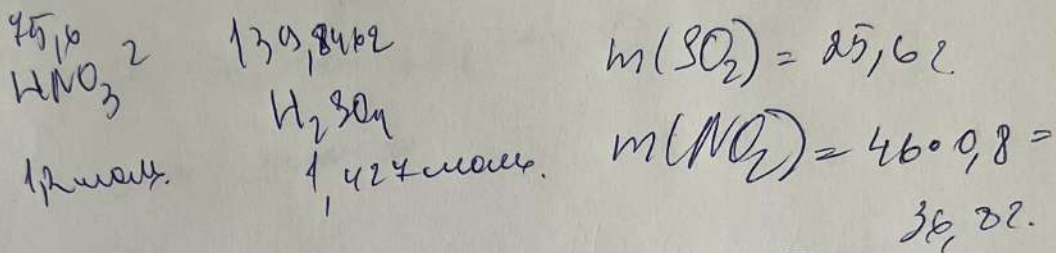 75,6 г
HNO₃
1,2 моль.
139,846 г
H₂SO₄
1,427 моль.
m(SO₂) = 25,6 г
m(NO₂) = 46·0,8 =
36,8 г.